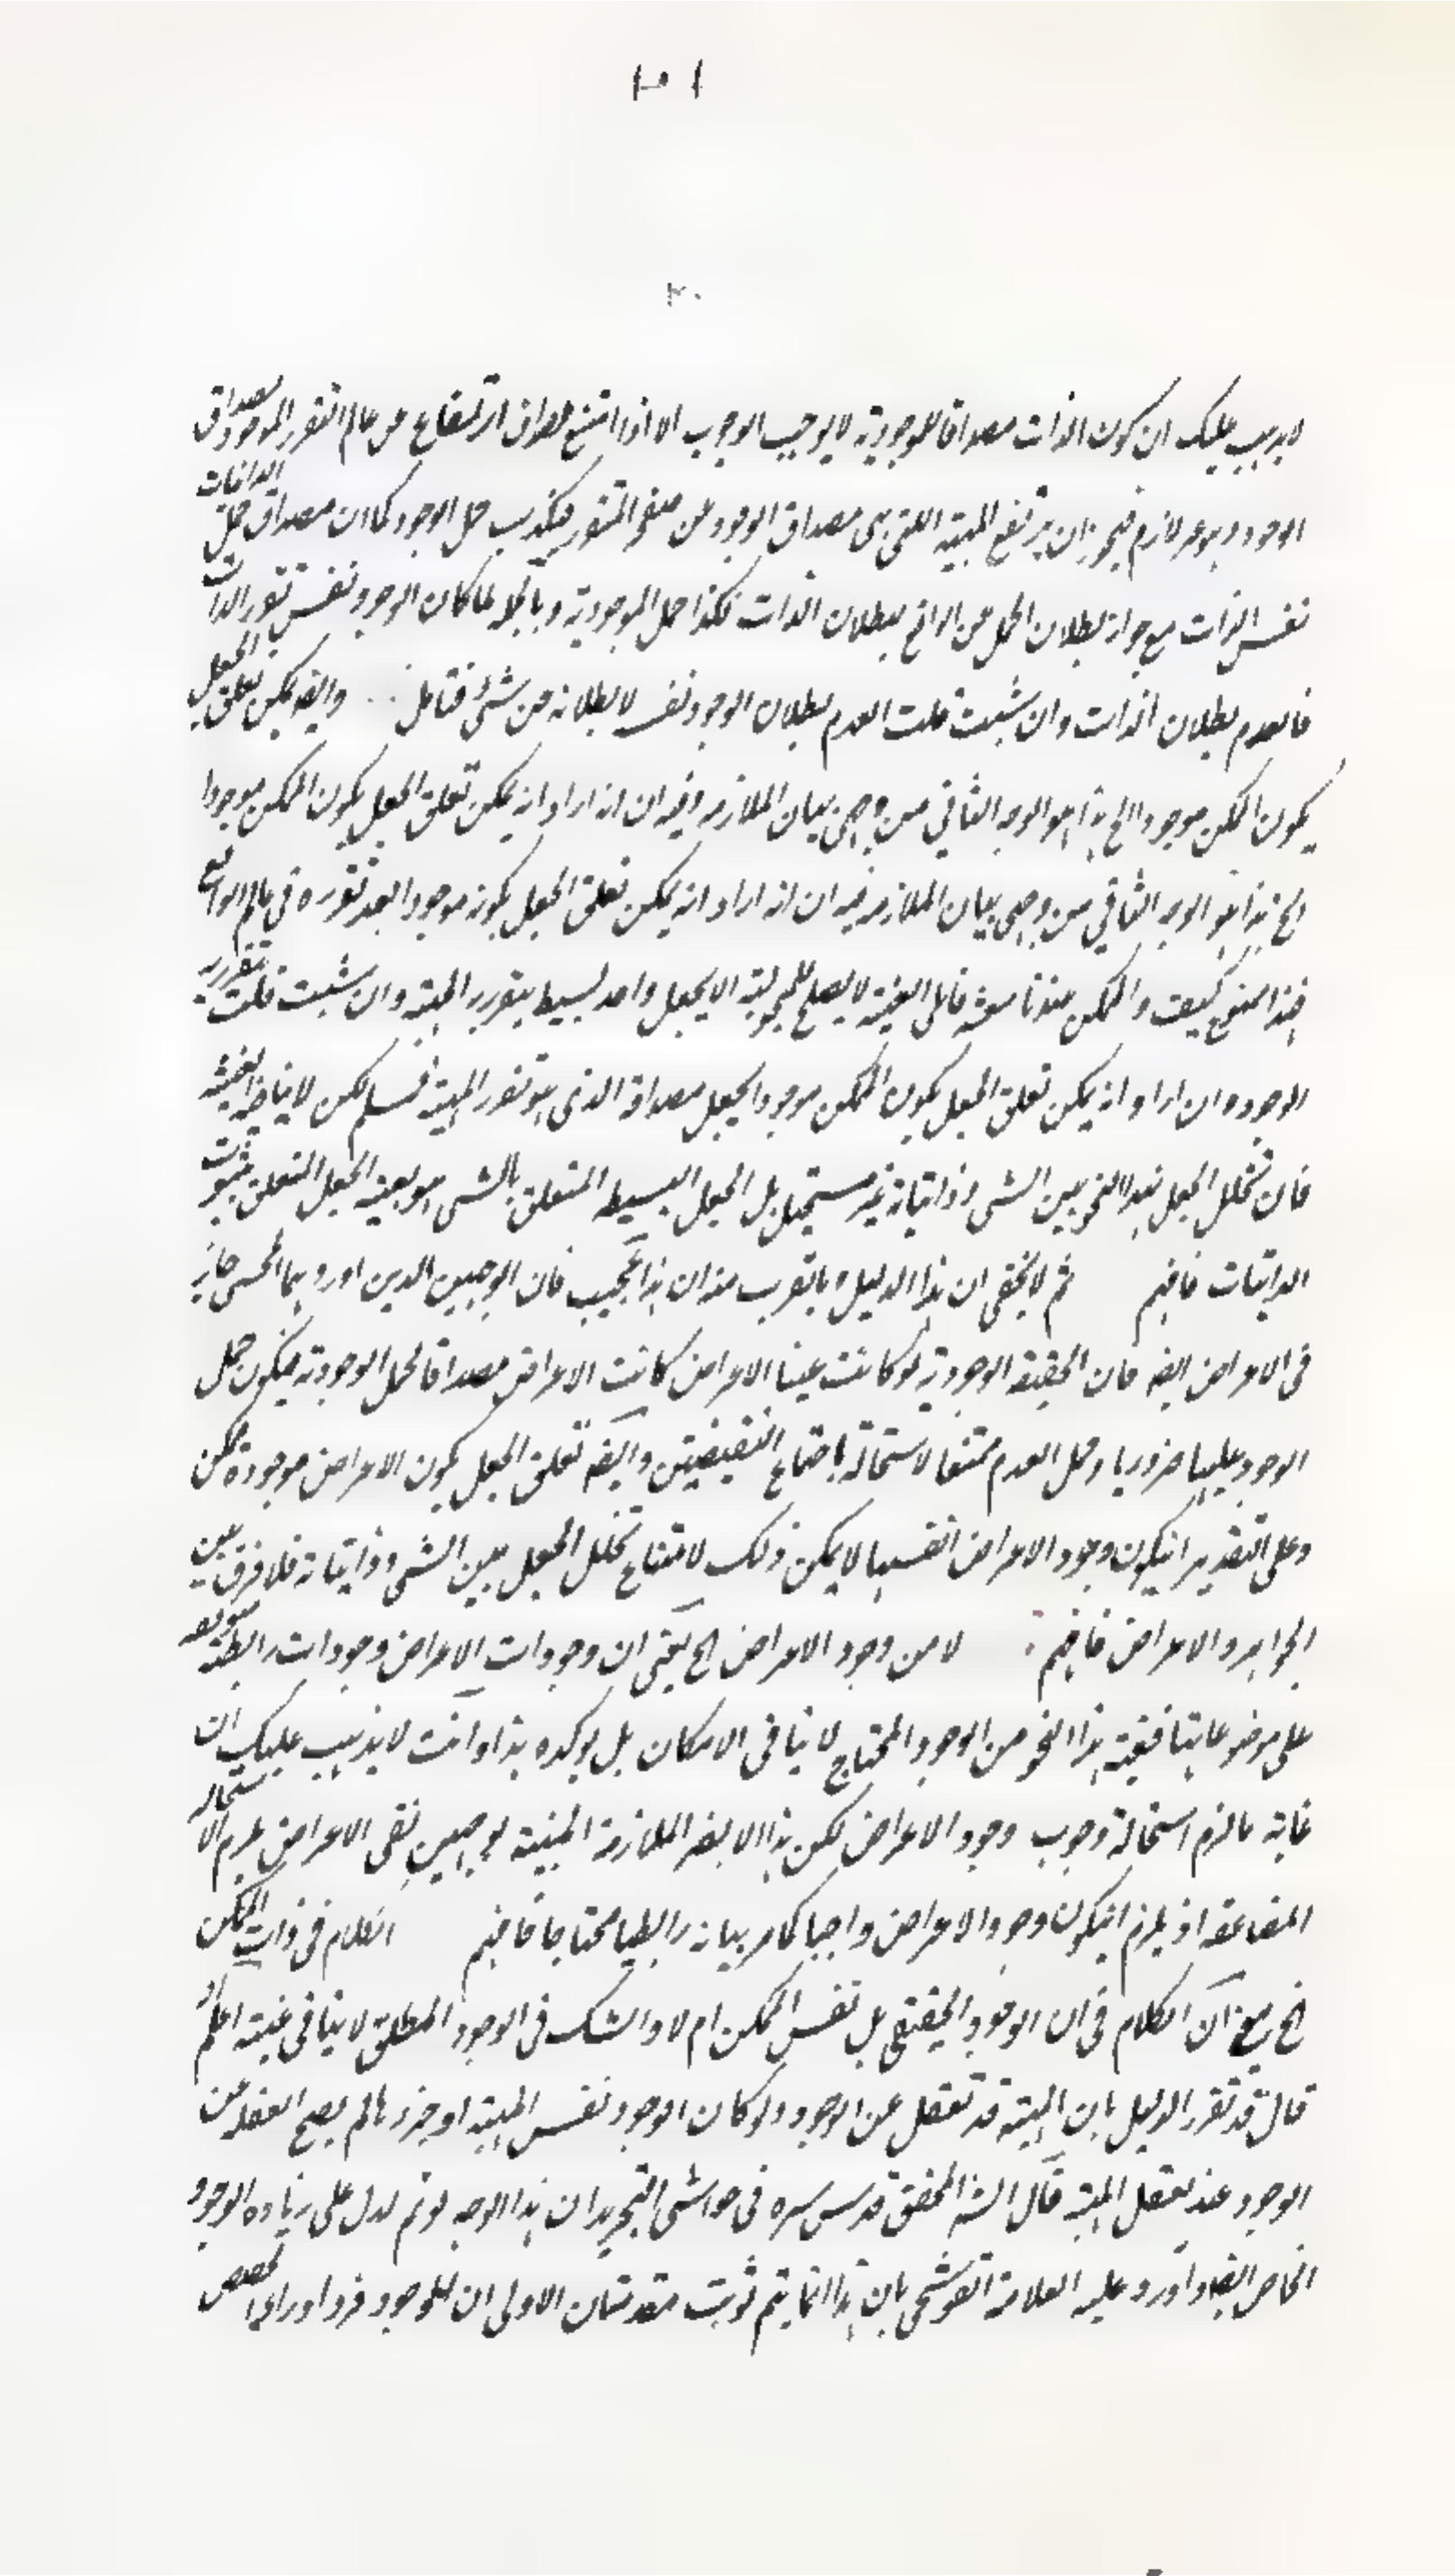 ٣٠
لا يذهب عليك ان كون الذات مصداقا للموجودية لا يوجب الوجوب الا اذا امتنع ارتفاع عن عالم التقرر الموجود مصداق
الوجود وهو غير لازم فيجوز ان يرتفع المهية اللتى هى مصداق الوجود عن صفح التقرر فيكذب حمل الوجود كما ان مصداق حمل الذاتيات
نفس الذات مع جواز بطلان الحمل عن الواقع ببطلان الذات فكذا حمل الموجودية وبالجملة لما كان الوجود نفس تقرر الذات
فالعدم بطلان الذات وان شئت قلت العدم بطلان الوجود نفسه لا بطلانه عن شئ فتامل وايضا يمكن تعلق الجعل
بكون الممكن موجودا الخ هذا هو الوجه الثانى من وجهى بيان الملازمه وفيه ان انه اراد انه يمكن تعلق الجعل بكون الممكن موجودا
الخ هذا هو الوجه الثانى من وجهى بيان الملازمه فيه ان انه اراد انه يمكن تعلق الجعل بكونه موجودا بعد تقرره فى عالم الواقع
فهذا ممنوع كيف والممكن عندنا قائلى العينية لا يصلح للمجعولية الا بجعل واحد بسيط بتقرر المهية وان شئت قلت بتقرر
الوجود وان اراد انه يمكن تعلق الجعل بكون الممكن موجودا بجعل مصداقه الذى هو تقرر المهية فمسلم لكن لا ينافى العينية
فان تخلل الجعل بهذا النحو بين الشى وذاتياته غير مستحيل بل الجعل البسيط المتعلق بالشى هو بعينه الجعل المتعلق بثبوت
الذاتيات فافهم ثم لا يخفى ان هذا الدليل وما يقرب منه ان هذا لعجيب فان الوجهين الذين اوردهما المحشى جاز
فى الاعراض ايضا فان الحقيقة الوجودية لو كانت عينا الاعراض كانت الاعراض مصداقا لحمل الوجودية فيكون حمل
الوجود عليها ضروريا وحمل العدم ممتنعا لاستحالة اجتماع النقيضين وايضا تعلق الجعل بكون الاعراض موجودة ممكن
وعلى التقدير ان يكون وجود الاعراض انفسها لا يمكن ذلك لامتناع تخلل الجعل بين الشى وذاتياته فلا فرق بين
الجواهر والاعراض فافهم لا من وجود الاعراض الخ يعنى ان وجودات الاعراض وجودات رابطة
على موضوعاتها فعينية هذا النحو من الوجود المحتاج لا ينافى الامكان بل يوكده هذا وانت لا يذهب عليك ان
غاية ما لزم استحالة وجوب وجود الاعراض لكن هذا لا يضر الملازمة المبنية بوجهين نفى الاعراض يلزم الاستحالة
المضاعفة اذ يلزم ان يكون وجود الاعراض واجبا كما مر بيانه رابطيا محتاجا فافهم الكلام فى ذات الممكن
الخ يعنى ان الكلام فى ان الوجود الحقيقى هل نفس الممكن ام لا والشك فى الوجود المطلق لا ينافى عينية
قال قد تقرر الدليل بان المهية قد تعقل عن الوجود ولو كان الوجود نفس المهية او جزءها لم يصح الغفلة عن
الوجود عند تعقل المهية قال الشه المحقق قدس سره فى حواشى التجريد ان هذا الوجه لو تم لدل على زيادة الوجود
الخاص ايضا واورد عليه العلامة القوشجى بان هذا انما يتم لو ثبت مقدمتان الاولى ان للوجود فردا وراء الحصص